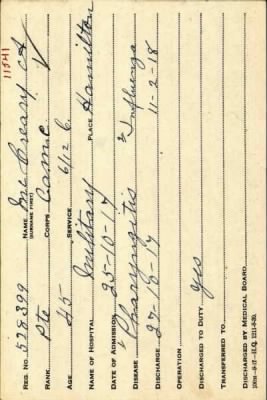 11541
REG. NO. 528399 NAME McCreary, C A
(SURNAME FIRST)
RANK Pte CORPS Camc
AGE 45 SERVICE 6/12 C.
NAME OF HOSPITAL Military PLACE Hamilton
DATE OF ADMISSION 25-10-17
DISEASE Pharyngitis & Influenza
DISCHARGE 27-10-17 11-2-18
OPERATION
DISCHARGED TO DUTY yes
TRANSFERRED TO
DISCHARGED BY MEDICAL BOARD